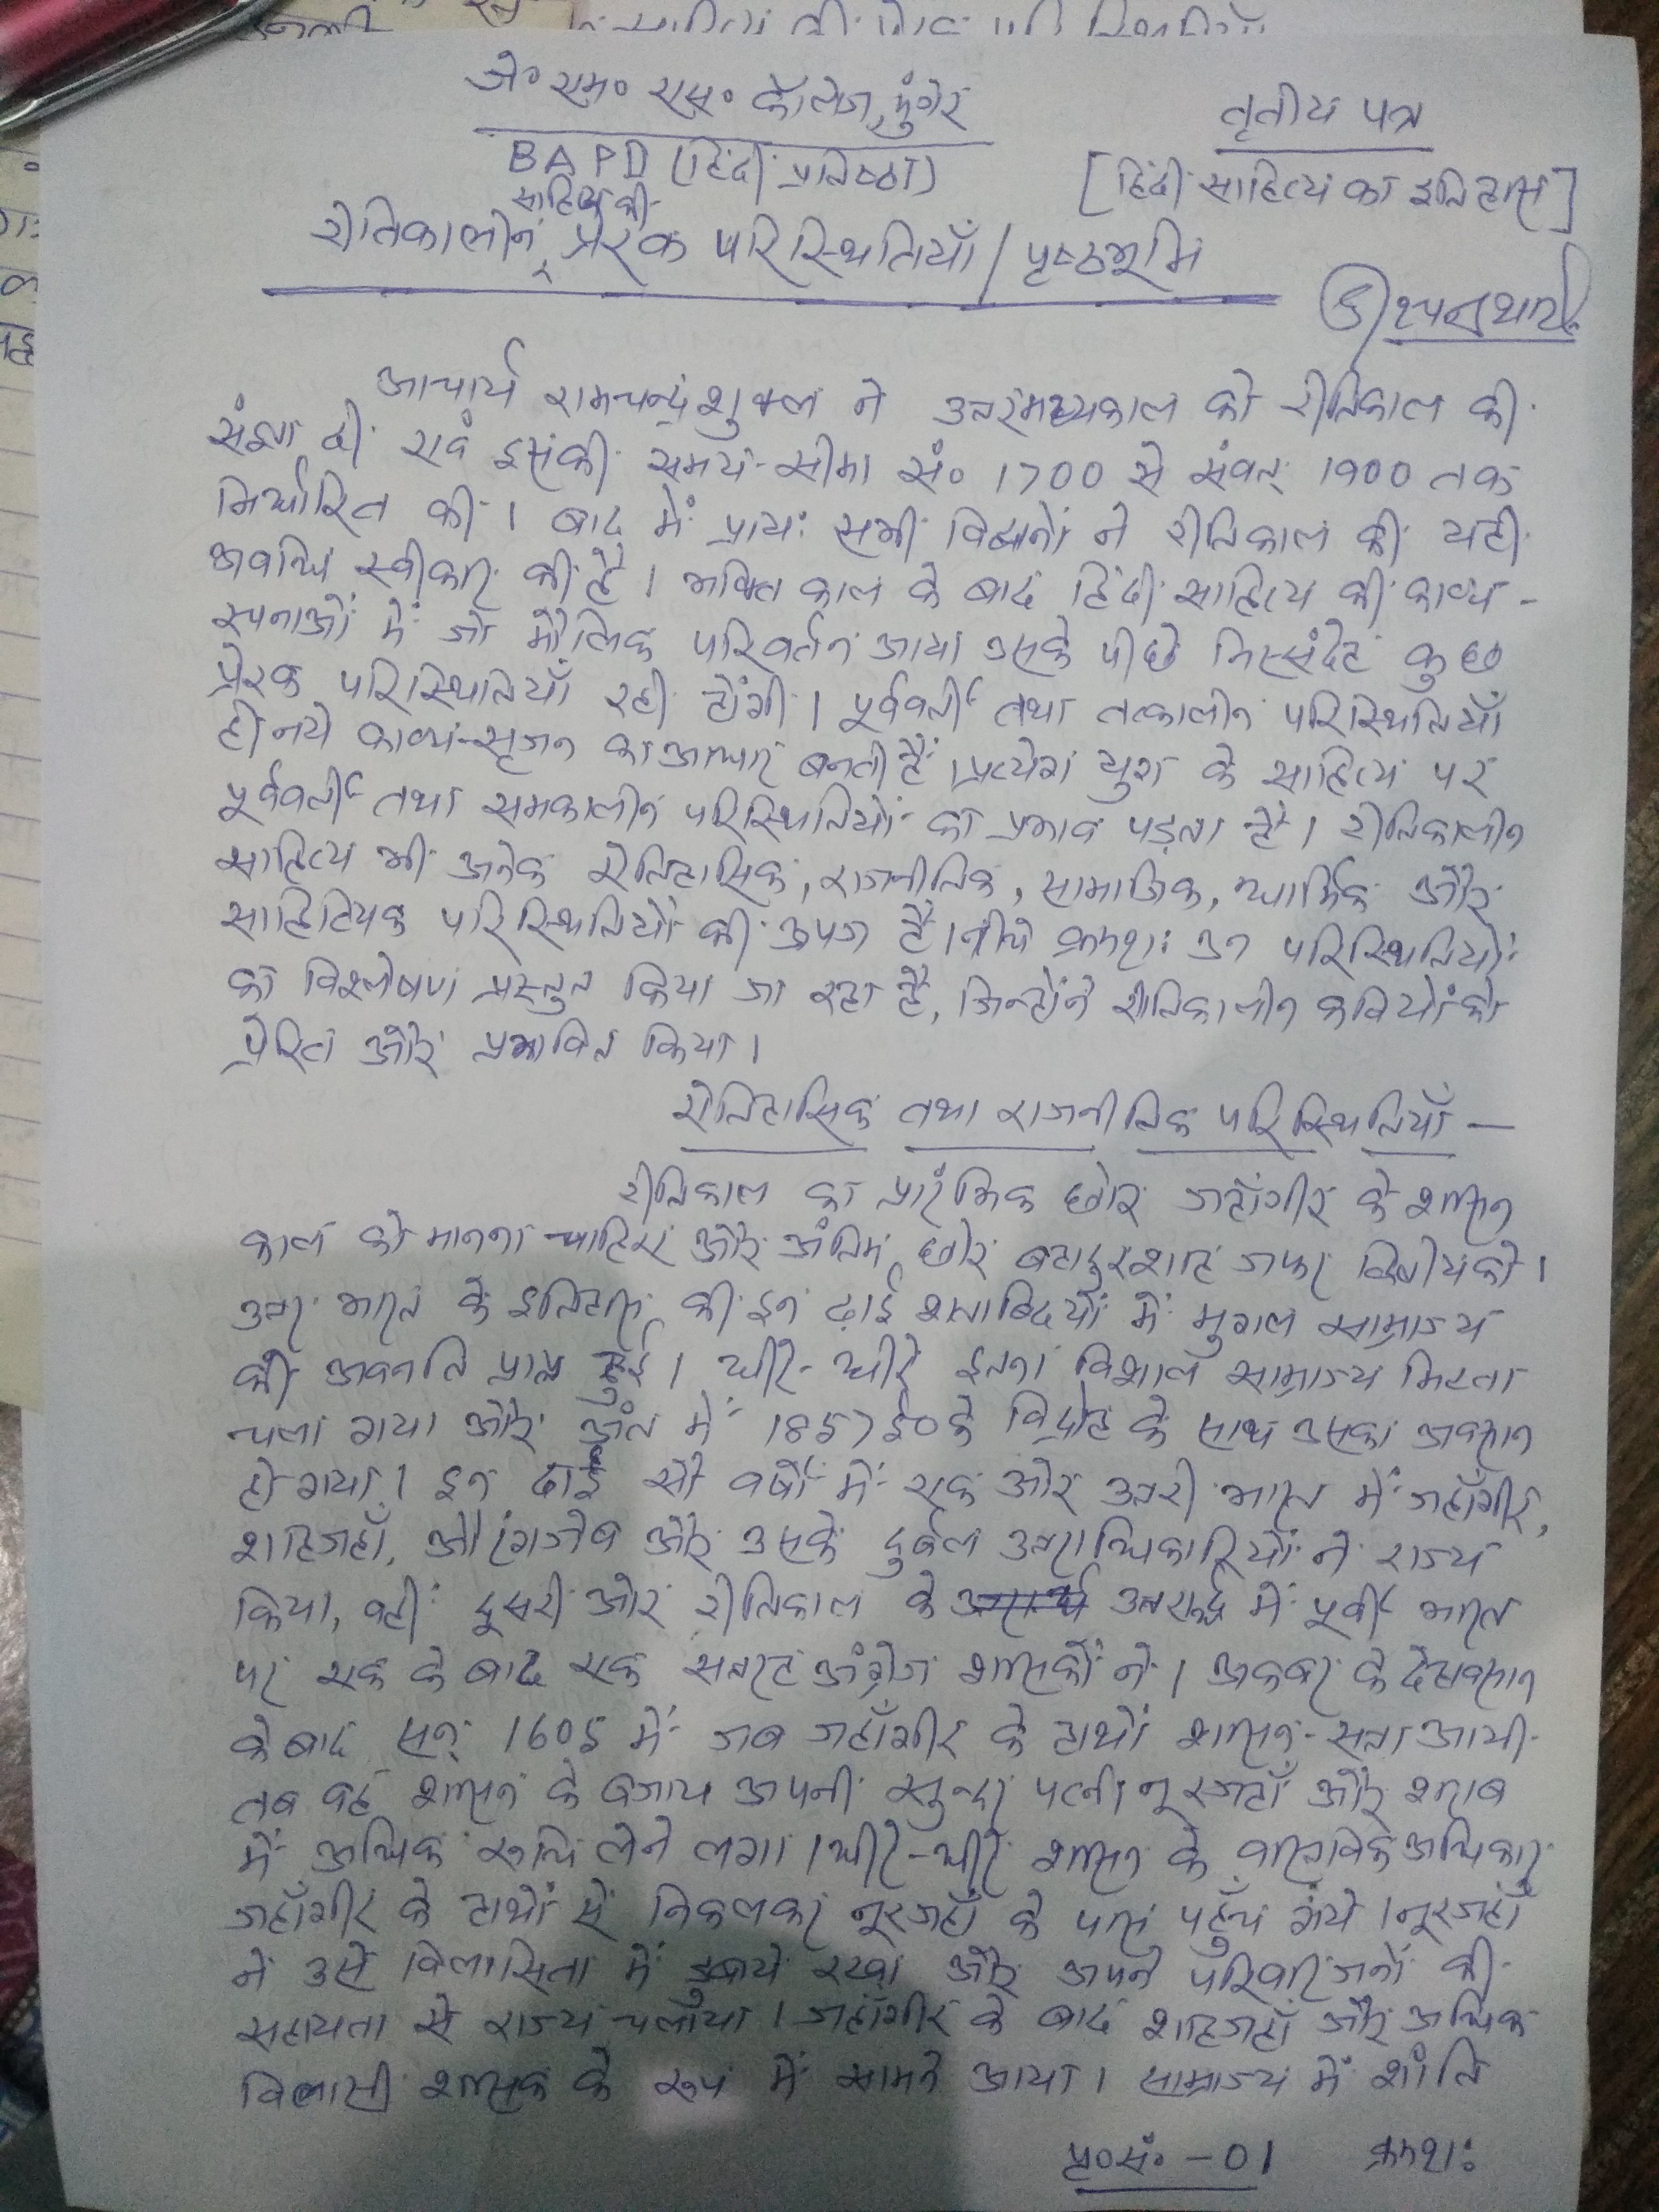 जे० एम० एस० कॉलेज, मुंगेर
तृतीय पत्र
BAPII (हिंदी प्रतिष्ठा)
[हिंदी साहित्य का इतिहास]
साहित्य की
रीतिकालीन प्रेरक परिस्थितियाँ / पृष्ठभूमि
आचार्य रामचन्द्र शुक्ल ने उत्तरमध्यकाल को रीतिकाल की
संज्ञा दी एवं इसकी समय-सीमा सं० 1700 से संवत् 1900 तक
निर्धारित की । बाद में प्रायः सभी विद्वानों ने रीतिकाल की यही
अवधि स्वीकार की है । भक्ति काल के बाद हिंदी साहित्य की काव्य-
रचनाओं में जो मौलिक परिवर्तन आया उसके पीछे निस्संदेह कुछ
प्रेरक परिस्थितियाँ रही होंगी । पूर्ववर्ती तथा तत्कालीन परिस्थितियाँ
ही नये काव्य-सृजन का आधार बनती हैं । प्रत्येग युग के साहित्य पर
पूर्ववर्ती तथा समकालीन परिस्थितियों का प्रभाव पड़ता है । रीतिकालीन
साहित्य भी अनेक ऐतिहासिक, राजनीतिक, सामाजिक, धार्मिक और
साहित्यिक परिस्थितियों की उपज है । नीचे क्रमशः उन परिस्थितियों
का विश्लेषण प्रस्तुत किया जा रहा है, जिन्होंने रीतिकालीन कवियों को
प्रेरित और प्रभावित किया ।
ऐतिहासिक तथा राजनीतिक परिस्थितियाँ —
रीतिकाल का प्रारंभिक छोर जहाँगीर के शासन
काल को मानना चाहिए और अंतिम छोर बहादुरशाह जफर द्वितीय को ।
उत्तर भारत के इतिहास की इन ढ़ाई शताब्दियों में मुगल साम्राज्य
की अवनति प्राप्त हुई । धीरे-धीरे इतना विशाल साम्राज्य मिटता
चला गया और अंत में 1857 ई० के विद्रोह के साथ उसका अवसान
हो गया । इन ढाई सौ वर्षों में एक ओर उत्तरी भारत में जहाँगीर,
शाहजहाँ, औरंगजेब और उसके दुर्बल उत्तराधिकारियों ने राज्य
किया, वहीं दूसरी ओर रीतिकाल के उत्तरार्द्ध में पूर्वी भारत
पर एक के बाद एक सत्तरह अंग्रेज शासकों ने । अकबर के देहावसान
के बाद सन् 1605 में जब जहाँगीर के हाथों शासन-सत्ता आयी
तब वह शासन के बजाय अपनी सुन्दर पत्नी नूरजहाँ और शराब
में अधिक रुचि लेने लगा । धीरे-धीरे शासन के वास्तविक अधिकार
जहाँगीर के हाथों से निकलकर नूरजहाँ के पास पहुँच गये । नूरजहाँ
ने उसे विलासिता में डुबाये रखा और अपने परिवारजनों की
सहायता से राज्य चलाया । जहाँगीर के बाद शाहजहाँ और अधिक
विलासी शासक के रूप में सामने आया । साम्राज्य में शांति
पृ०सं० -01 क्रमशः